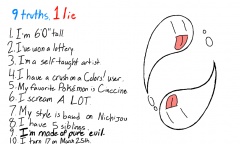 9 truths, 1 lie
1. I'm 6'0" tall
2. I've won a lottery
3. I'm a self-taught artist.
4. I have a crush on a Colors! user.
5. My favorite Pokémon is Cinccino.
6. I scream A LOT.
7. My style is based on Nichijou
8. I have 5 siblings.
9. I'm made of pure evil.
10. I turn 17 on March 25th.